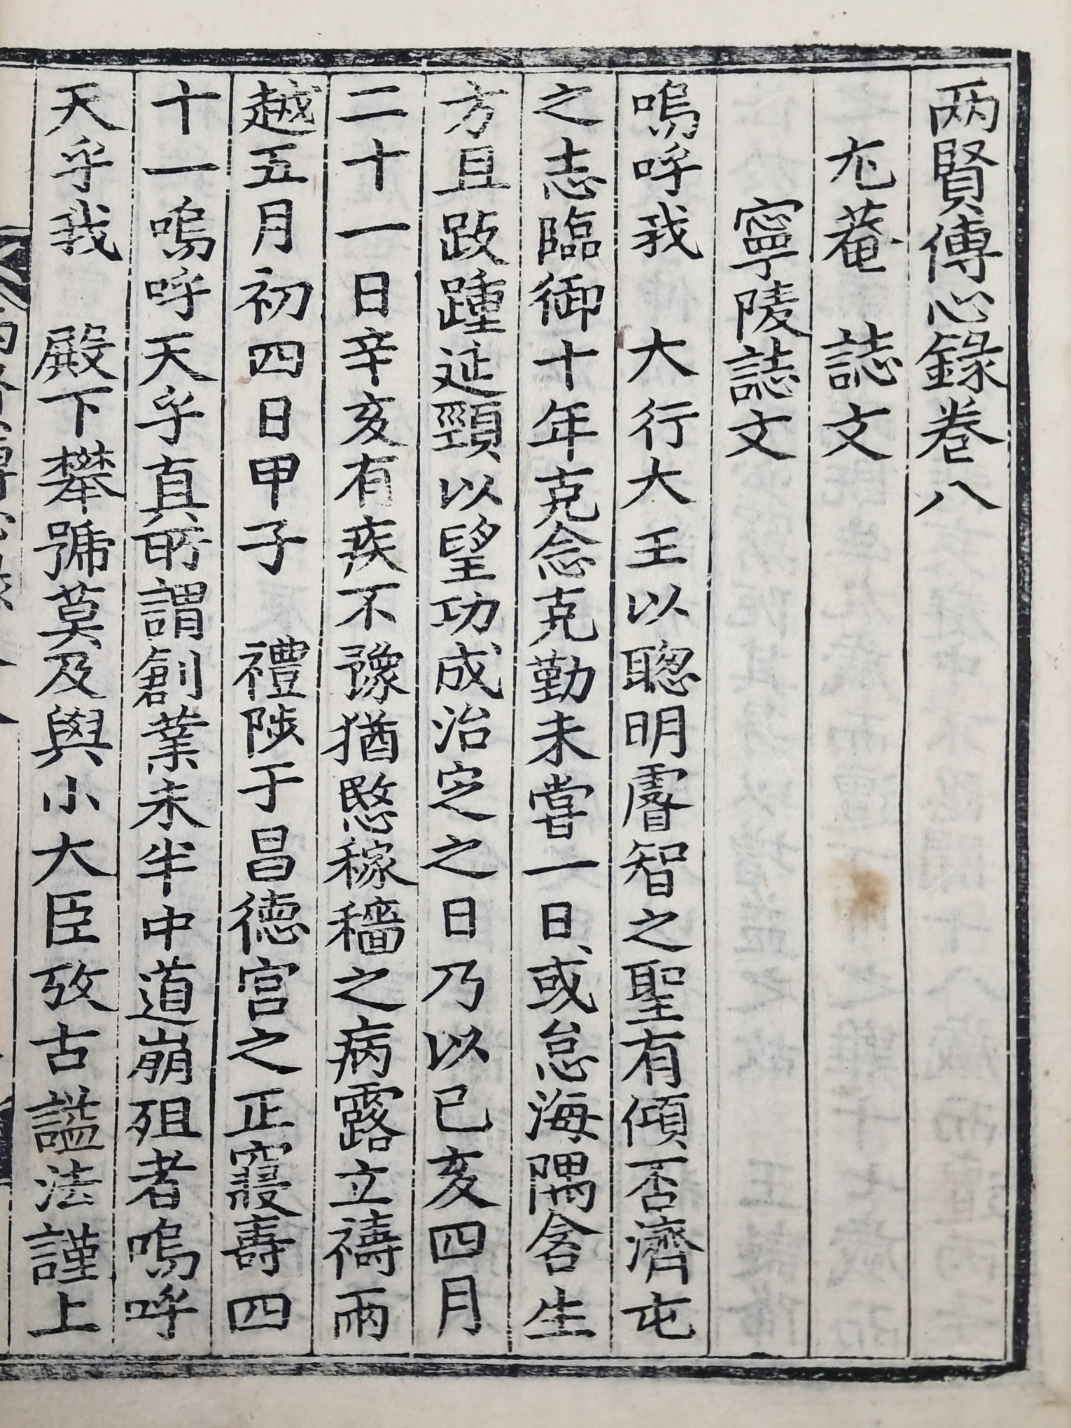 兩賢傳心錄卷八
尤菴　誌文
寧陵誌文
嗚呼我　大行大王以聰明睿智之聖有傾否濟屯
之志臨御十年克念克勤未嘗一日或怠海隅含生
方且跂踵延頸以望功成治定之日乃以己亥四月
二十一日辛亥有疾不豫猶愍稼穡之病露立禱雨
越五月初四日甲子　禮陟于昌德宮之正寢壽四
十一嗚呼天乎真所謂創業未半中道崩殂者嗚呼
天乎我　殿下攀號莫及與小大臣攷古謚法謹上